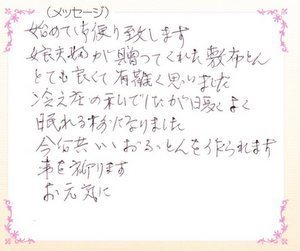 （メッセージ）
始めてお便り致します
娘夫婦が贈ってくれた敷布とん
とても良くて有難く思いました
冷え症の私でしたが暖くよく
眠れる様になりました
今后共いいおふとんを作られます
事を祈ります
お元気に